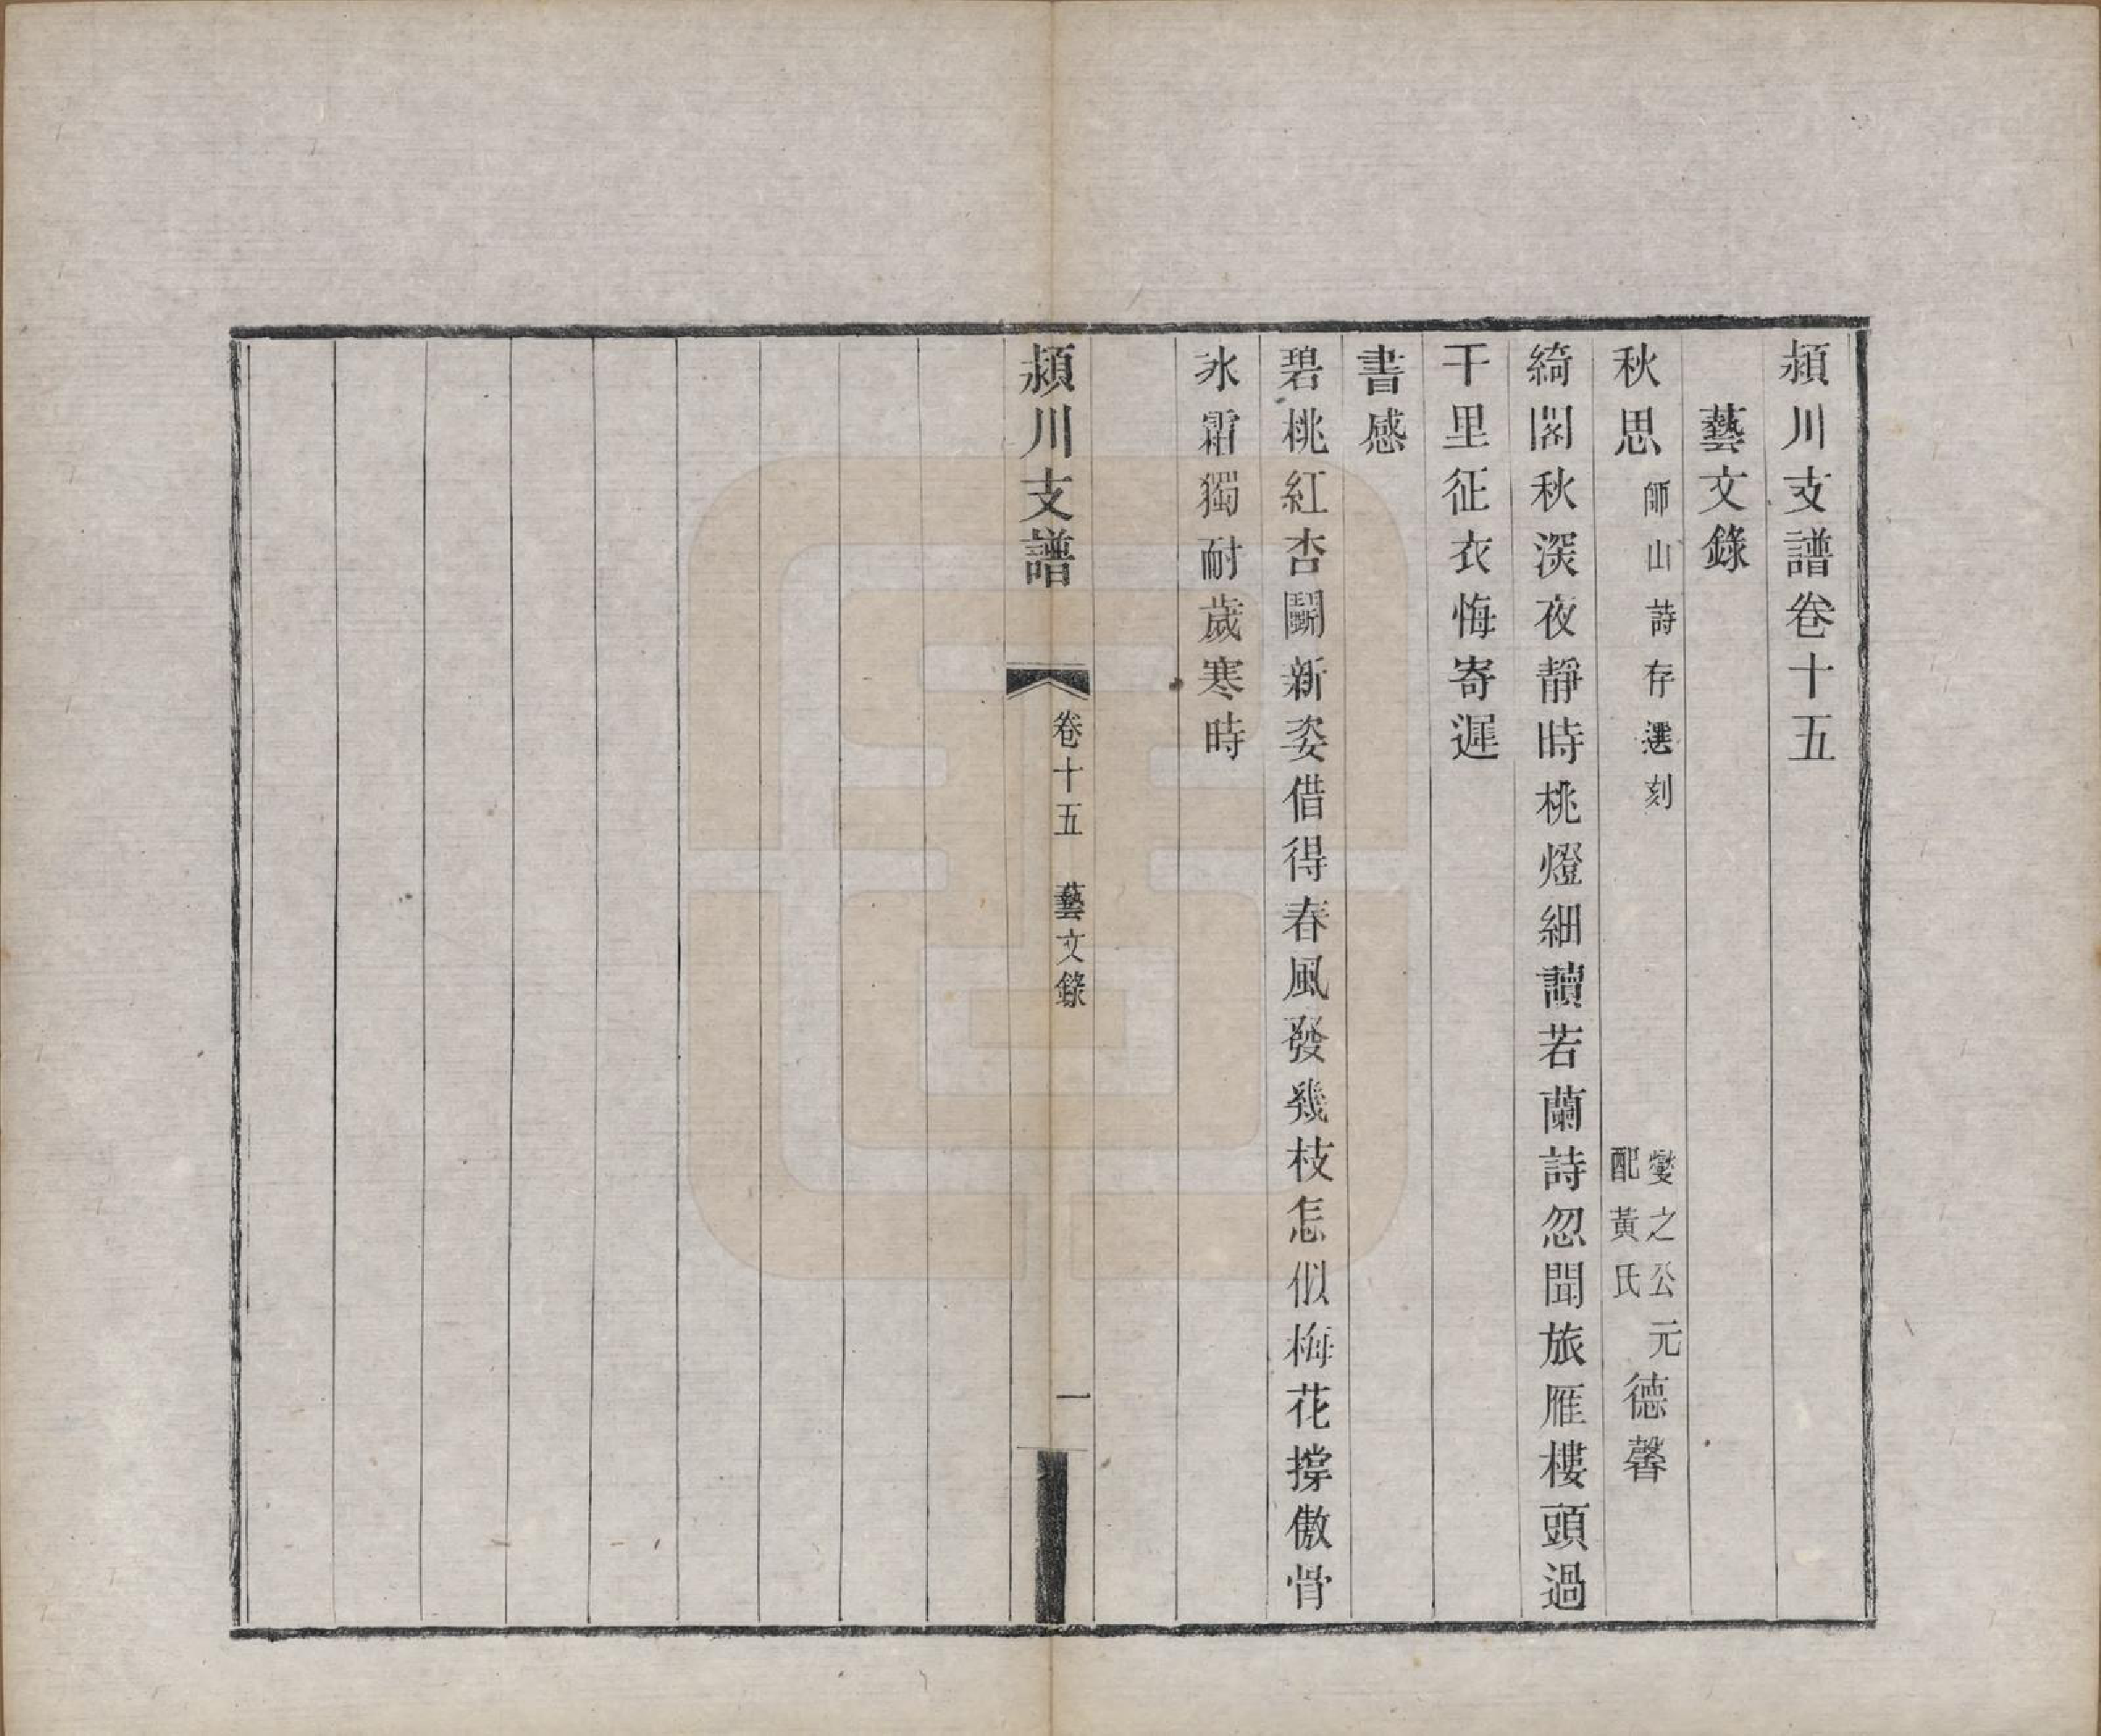 潁川支譜卷十五
藝文錄
秋思 師山詩存選刻 燮之公元配黃氏 德馨
綺閣秋深夜靜時桃燈細讀若蘭詩忽聞旅雁樓頭過
千里征衣悔寄遲
書感
碧桃紅杏鬭新姿借得春風發幾枝怎似梅花撐傲骨
氷霜獨耐歲寒時
潁川支譜 卷十五 藝文錄 一